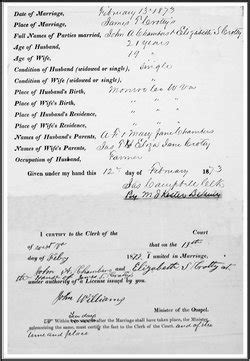 Date of Marriage, February 13th 1873
Place of Marriage, James P Croty's
Full Names of Parties married, John A Chambers & Elizabeth S Croty
Age of Husband, 21 years
Age of Wife, 19 "
Condition of Husband (widowed or single), Single
Condition of Wife (widowed or single), "
Place of Husband's Birth, Monroe Co W Va
Place of Wife's Birth, " "
Place of Husband's Residence, " "
Place of Wife's Residence, " "
Names of Husband's Parents, A F & Mary Jane Chambers
Names of Wife's Parents, Jas P & Eliza Jane Croty
Occupation of Husband, Farmer
Given under my hand this 12th day of February 1873
Jas Campbell Clk
I CERTIFY to the Clerk of the Court
of on the 13th
day of Feby 1873, I united in Marriage,
John A Chambers and Elizabeth S Croty at
the house of James P Croty
under authority of a License issued by you.
John Williams
Minister of the Gospel.
Within ten days after the Marriage shall have taken place, the Minister
solemnizing the same, must certify the fact to the Clerk of the Court and of the
time and place